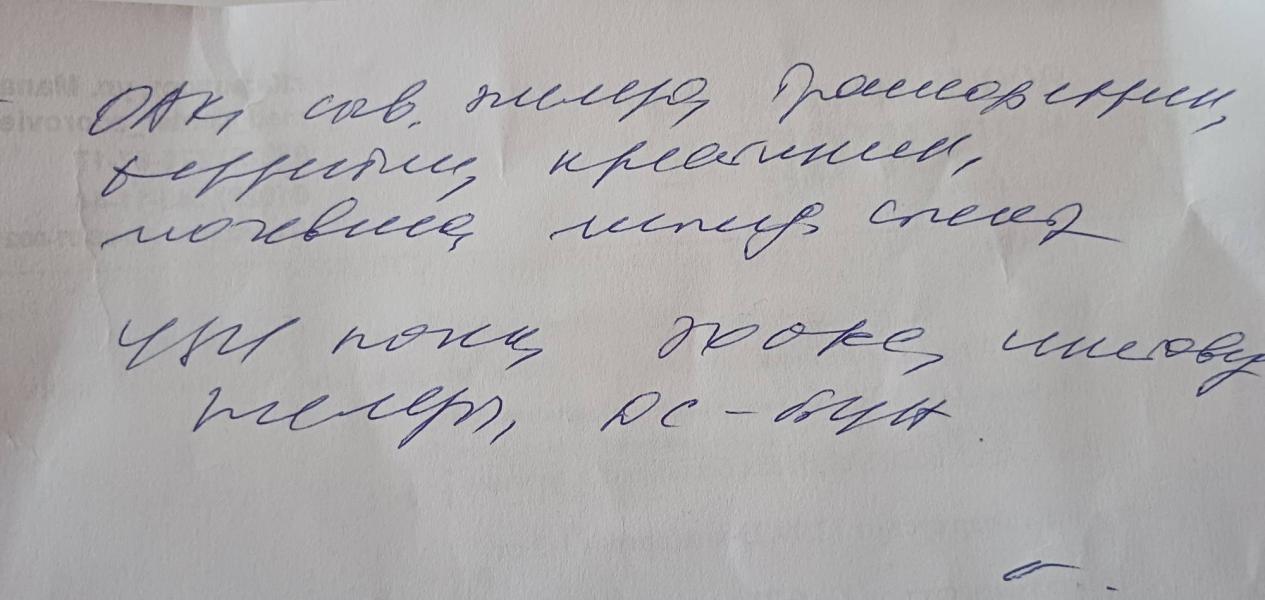 ОАК, сыв. железо, трансферрин,
ферритин, креатинин,
мочевина, липид. спектр
УЗИ почек, ЭХОКС, щитовид
железы, ДС - БЦА